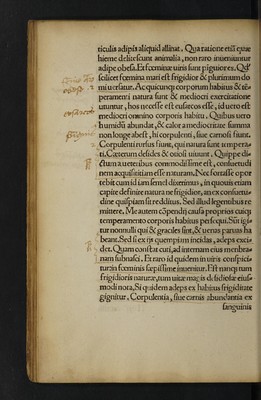 ticulis adipis aliquid allinat. Qua ratione etiã quæ
hieme delitescunt animalia, non raro inueniuntur
adipe obesa. Et fœminæ uiris sunt piguiores. Qđ
scilicet fœmina mari est frigidior & plurimum do
mi uersatur. Ac quicunq; corporum habitus & tẽ
peramenti natura sunt & mediocri exercitatione
utuntur, hos necesse est eusarcos esse, id uero est
mediocri omnino corporis habitu. Quibus uero
humidũ abundat, & calor a mediocritate summa
non longe abest, hi corpulenti, siue carnosi fiunt.
Corpulenti rursus fiunt, qui natura sunt tempera-
ti. Cæterum desides & ociosi uiuunt. Quippe di-
ctum a ueteribus commodissime est, consuetudi-
nem acquisititiam esse naturam. Nec fortasse opor
tebit cum id iam semel dixerimus, in quouis etiam
capite definire natura ne frigidior, an ex consuetu-
dine quispiam sit redditus. Sed illud legentibus re
mittere. Me autem cõpendij causa proprios cuiq;
temperamento corporis habitus persequi. Siñ igi-
tur nonnulli qui & graciles sint, & uenas paruas ha
beant. Sed si ex ijs quempiam incidas, adeps exci-
det. Quam constat cuti, ad internam eius membra-
nam subnasci. Et raro id quidem in uiris conspici-
tur, in fœminis sæpissime inuenitur. Est nanq; tum
frigidioris naturæ, tum uitæ magis desidiosæ eius-
modi nota. Si quidem adeps ex habitus frigiditate
gignitur. Corpulentia, siue carnis abundantia ex
sanguinis